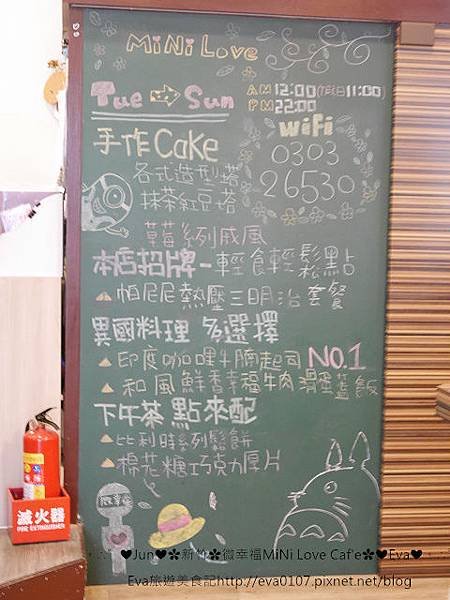 MiNi Love
Tue ⇨ Sun
AM 12:00(假日11:00)
PM 22:00
WiFi
0303
26530
手作Cake
各式造型塔
抹茶紅豆塔
草莓系列戚風
本店招牌-輕食輕鬆點
帕尼尼熱壓三明治 套餐
異國料理 多選擇
印度咖哩牛腩起司 NO.1
和風鮮香幸福牛肉滑蛋蓋飯
下午茶 點來配
比利時系列鬆餅
棉花糖巧克力厚片
微幸福
滅火器
FIRE EXTINGUISHER
♥Jun♥✿新竹✿微幸福MiNi Love Caf'e✿♥Eva♥
Eva旅遊美食記http://eva0107.pixnet.net/blog